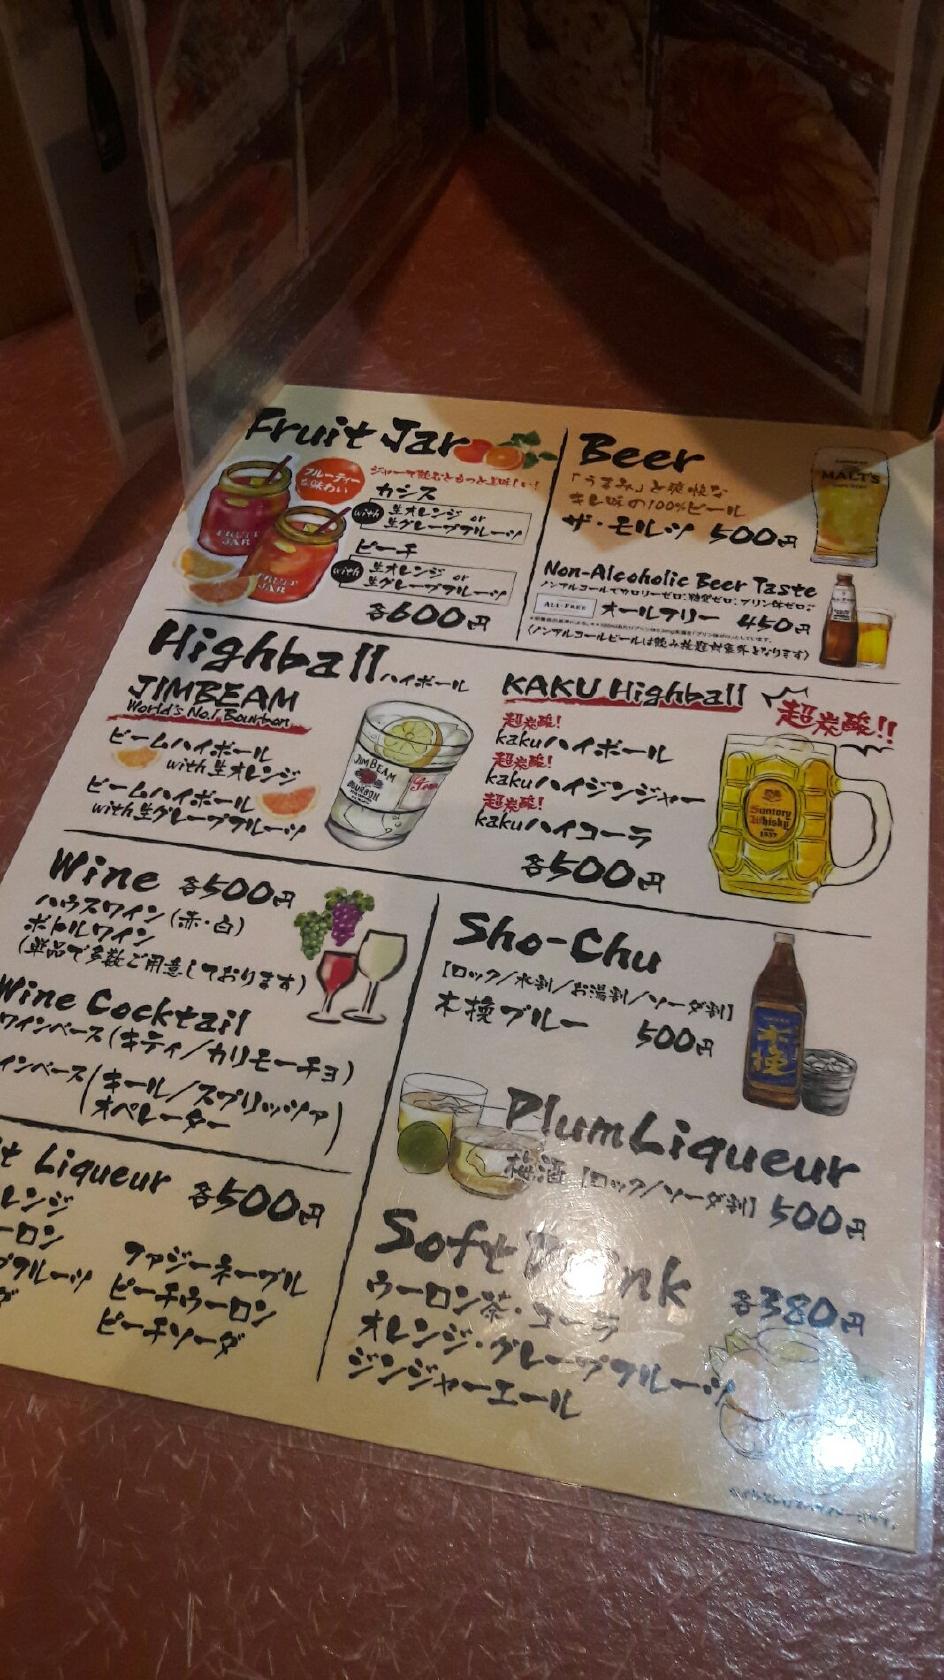 Fruit Jar
フルーティー
な味わい
カシス
with 生オレンジ or
生グレープフルーツ
ピーチ
with 生オレンジ or
生グレープフルーツ
各600円
FRUIT
JAR
FRUIT
JAR
Beer
「うまみ」と爽快な
キレ味の100%ビール
ザ・モルツ 500円
MALT'S
Non-Alcoholic Beer Taste
ノンアルコールでカロリーゼロ、糖質ゼロ、プリン体ゼロ
ALL-FREE オールフリー 450円
(ノンアルコールビールは飲み放題対象外となります)
Highball ハイボール
JIMBEAM
World's No.1 Bourbon
ビームハイボール
with 生オレンジ
ビームハイボール
with 生グレープフルーツ
JIM BEAM
BOURBON
KAKU Highball
超炭酸!!
超炭酸!
kakuハイボール
超炭酸!
kakuハイジンジャー
超炭酸!
kakuハイコーラ
各500円
Suntory
Whisky
1937
Wine 各500円
ハウスワイン(赤・白)
ボトルワイン
(単品で多数ご用意しております)
Wine Cocktail
ワインベース(キティ/カリモーチョ)
インベース(キール/スプリッツァ
オペレーター)
Sho-Chu
[ロック/水割/お湯割/ソーダ割]
木挽ブルー 500円
木挽
Plum Liqueur
梅酒 [ロック/ソーダ割] 500円
t Liqueur 各500円
レンジ
ーロン
プフルーツ
ダ
ファジーネーブル
ピーチウーロン
ピーチソーダ
Soft Drink
各380円
ウーロン茶・コーラ
オレンジ・グレープフルーツ
ジンジャーエール